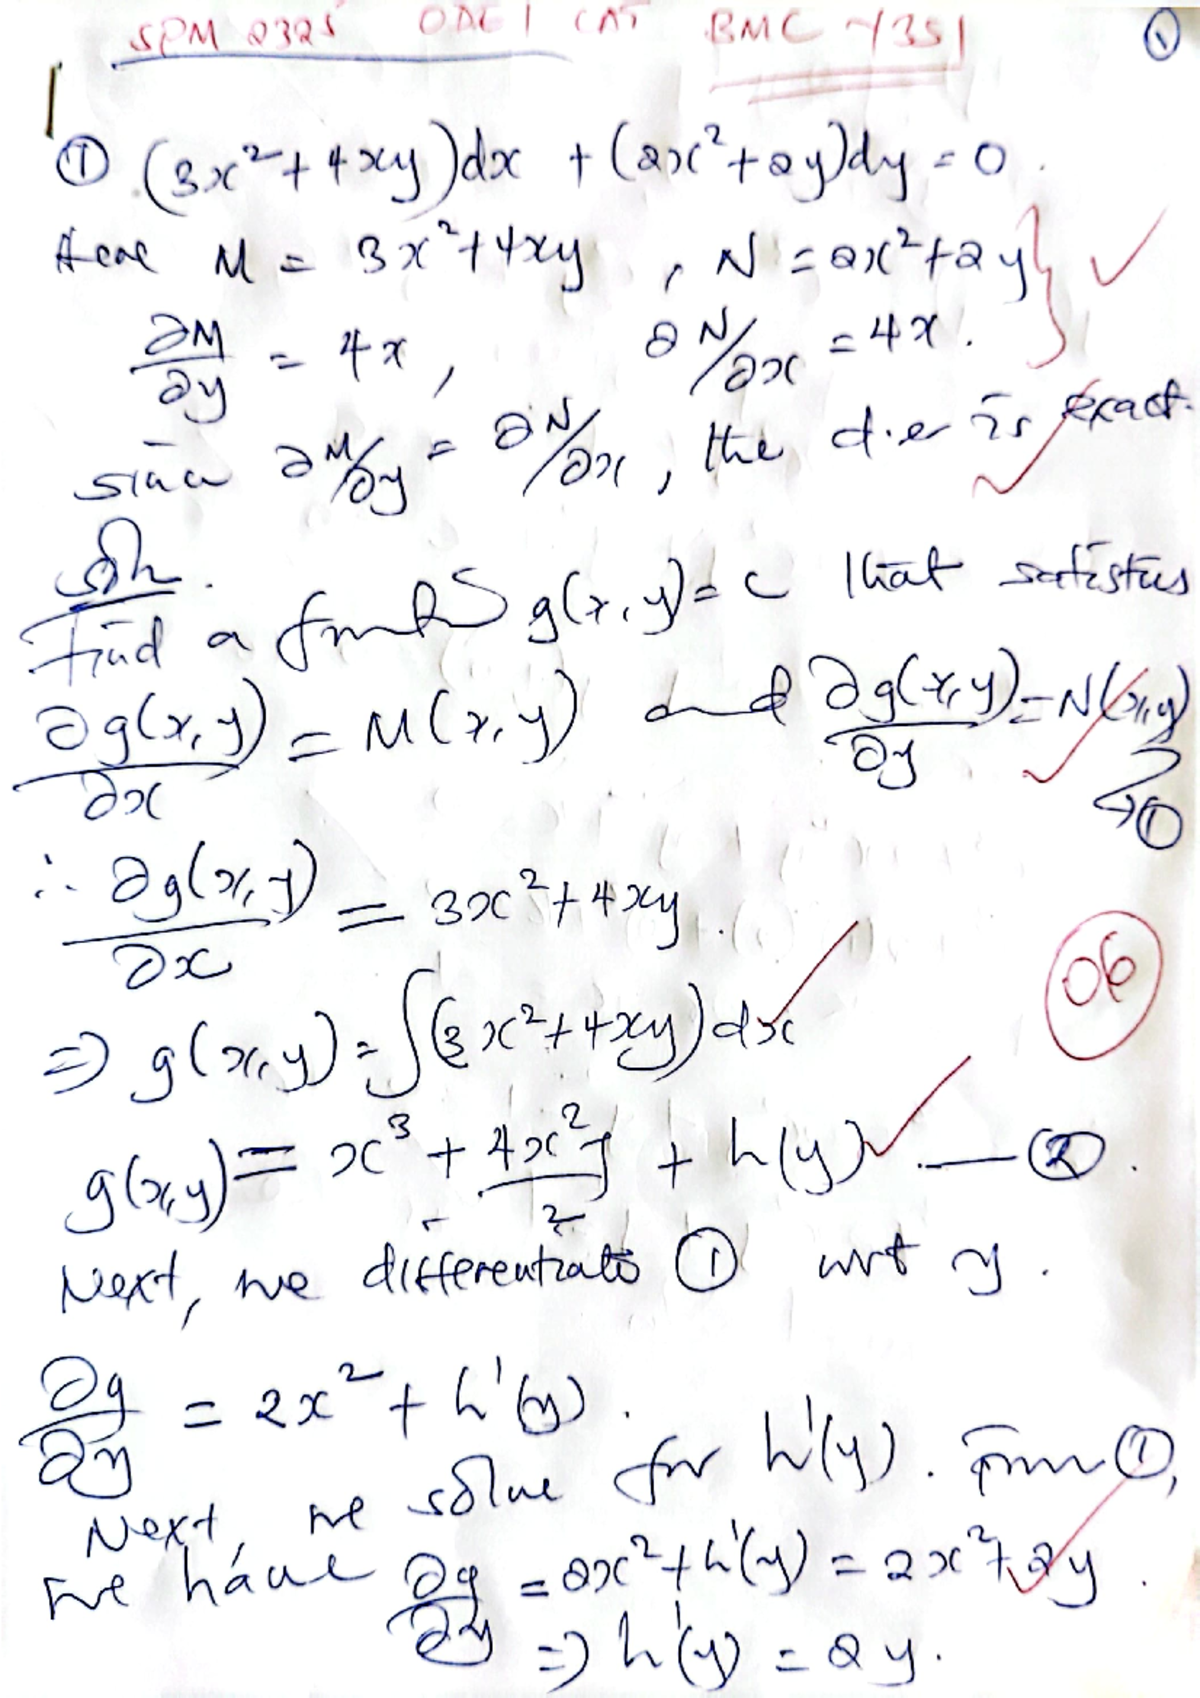 SPM 2325 ODE 1 CAT BMC 4351 ①
① (3x²+4xy)dx + (2x²+2y)dy = 0.
Here M = 3x²+4xy, N = 2x²+2y
∂M/∂y = 4x, ∂N/∂x = 4x.
since ∂M/∂y = ∂N/∂x, the d.e is exact.
Soln.
Find a g(x,y)=c that satisfies
∂g(x,y)/∂x = M(x,y) and ∂g(x,y)/∂y = N(x,y)
→①
∴ ∂g(x,y)/∂x = 3x²+4xy.
06
⇒ g(x,y) = ∫(3x²+4xy)dx
g(x,y) = x³ + 4x²y/2 + h(y) — ②.
Next, we differentiate ① wrt y.
∂g/∂y = 2x² + h'(y).
Next, we solve for h'(y). From ①,
we have ∂g/∂y = 2x²+h'(y) = 2x²+2y.
⇒ h'(y) = 2y.